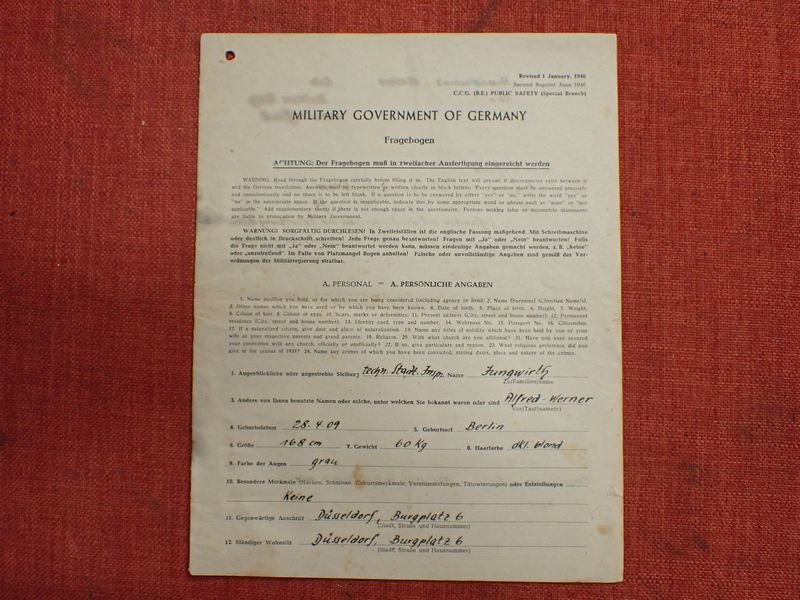 Revised 1 January, 1946
Second Reprint June 1946
C.C.G. (B.E.) PUBLIC SAFETY (Special Branch)
MILITARY GOVERNMENT OF GERMANY
Fragebogen
ACHTUNG: Der Fragebogen muß in zweifacher Ausfertigung eingereicht werden
WARNING: Read through the Fragebogen carefully before filling it in. The English text will prevail if discrepancies exist between it
and the German translation. Answers must by typewritten or written clearly in block letters. Every question must be answered precisely
and conscientiously and no space is to be left blank. If a question is to be answered by either "yes" or "no", write the word "yes" or
"no" in the appropriate space. If the question is inapplicable, indicate this by some appropriate word or phrase such as "none" or "not
applicable." Add supplementary sheets if there is not enough space in the questionnaire. Persons making false or incomplete statements
are liable to prosecution by Military Government.
WARNUNG! SORGFÄLTIG DURCHLESEN! In Zweifelsfällen ist die englische Fassung maßgebend. Mit Schreibmaschine
oder deutlich in Druckschrift schreiben! Jede Frage genau beantworten! Fragen mit „Ja" oder „Nein" beantworten! Falls
die Frage nicht mit „Ja" oder „Nein" beantwortet werden kann, müssen eindeutige Angaben gemacht werden, z. B. „keine"
oder „unzutreffend". Im Falle von Platzmangel Bogen anheften! Falsche oder unvollständige Angaben sind gemäß der Ver-
ordnungen der Militärregierung strafbar.
A. PERSONAL = A. PERSÖNLICHE ANGABEN
1. Name position you hold, or for which you are being considered (including agency or firm). 2. Name (Surname) (Christian Name/s).
3. Other names which you have used or by which you have been known. 4. Date of birth. 5. Place of birth. 6. Height. 7. Weight.
8. Colour of hair. 9. Colour of eyes. 10. Scars, marks or deformities. 11. Present address (City, street and house number). 12. Permanent
residence (City, street and house number). 13. Identity card, type and number. 14. Wehrpass No. 15. Passport No. 16. Citizenship.
17. If a naturalized citizen, give date and place of naturalization. 18. Name any titles of nobility which have been held by you or your
wife or your respective parents and grand parents. 19. Religion. 20. With what church are you affiliated? 21. Have you ever severed
your connection with any church, officially or unofficially? 22. If so, give particulars and reason. 23. What religious preference did you
give in the census of 1939? 24. Name any crimes of which you have been convicted, stating dates, place and nature of the crimes.
1. Augenblickliche oder angestrebte Stellung techn. Stadt. Insp. Name Jungwirth
Zu(Familien)name
3. Andere von Ihnen benutzte Namen oder solche, unter welchen Sie bekannt waren oder sind Alfred-Werner
Vor(Tauf)name(n)
4. Geburtsdatum 28.4.09 5. Geburtsort Berlin
6. Größe 168 cm 7. Gewicht 60 Kg 8. Haarfarbe dkl. blond
9. Farbe der Augen grau
10. Besondere Merkmale (Narben, Schmisse, Geburtsmerkmale, Verstümmelungen, Tätowierungen) oder Entstellungen
Keine
11. Gegenwärtige Anschrift Düsseldorf, Burgplatz 6
(Stadt, Straße und Hausnummer)
12. Ständiger Wohnsitz Düsseldorf, Burgplatz 6
(Stadt, Straße und Hausnummer)